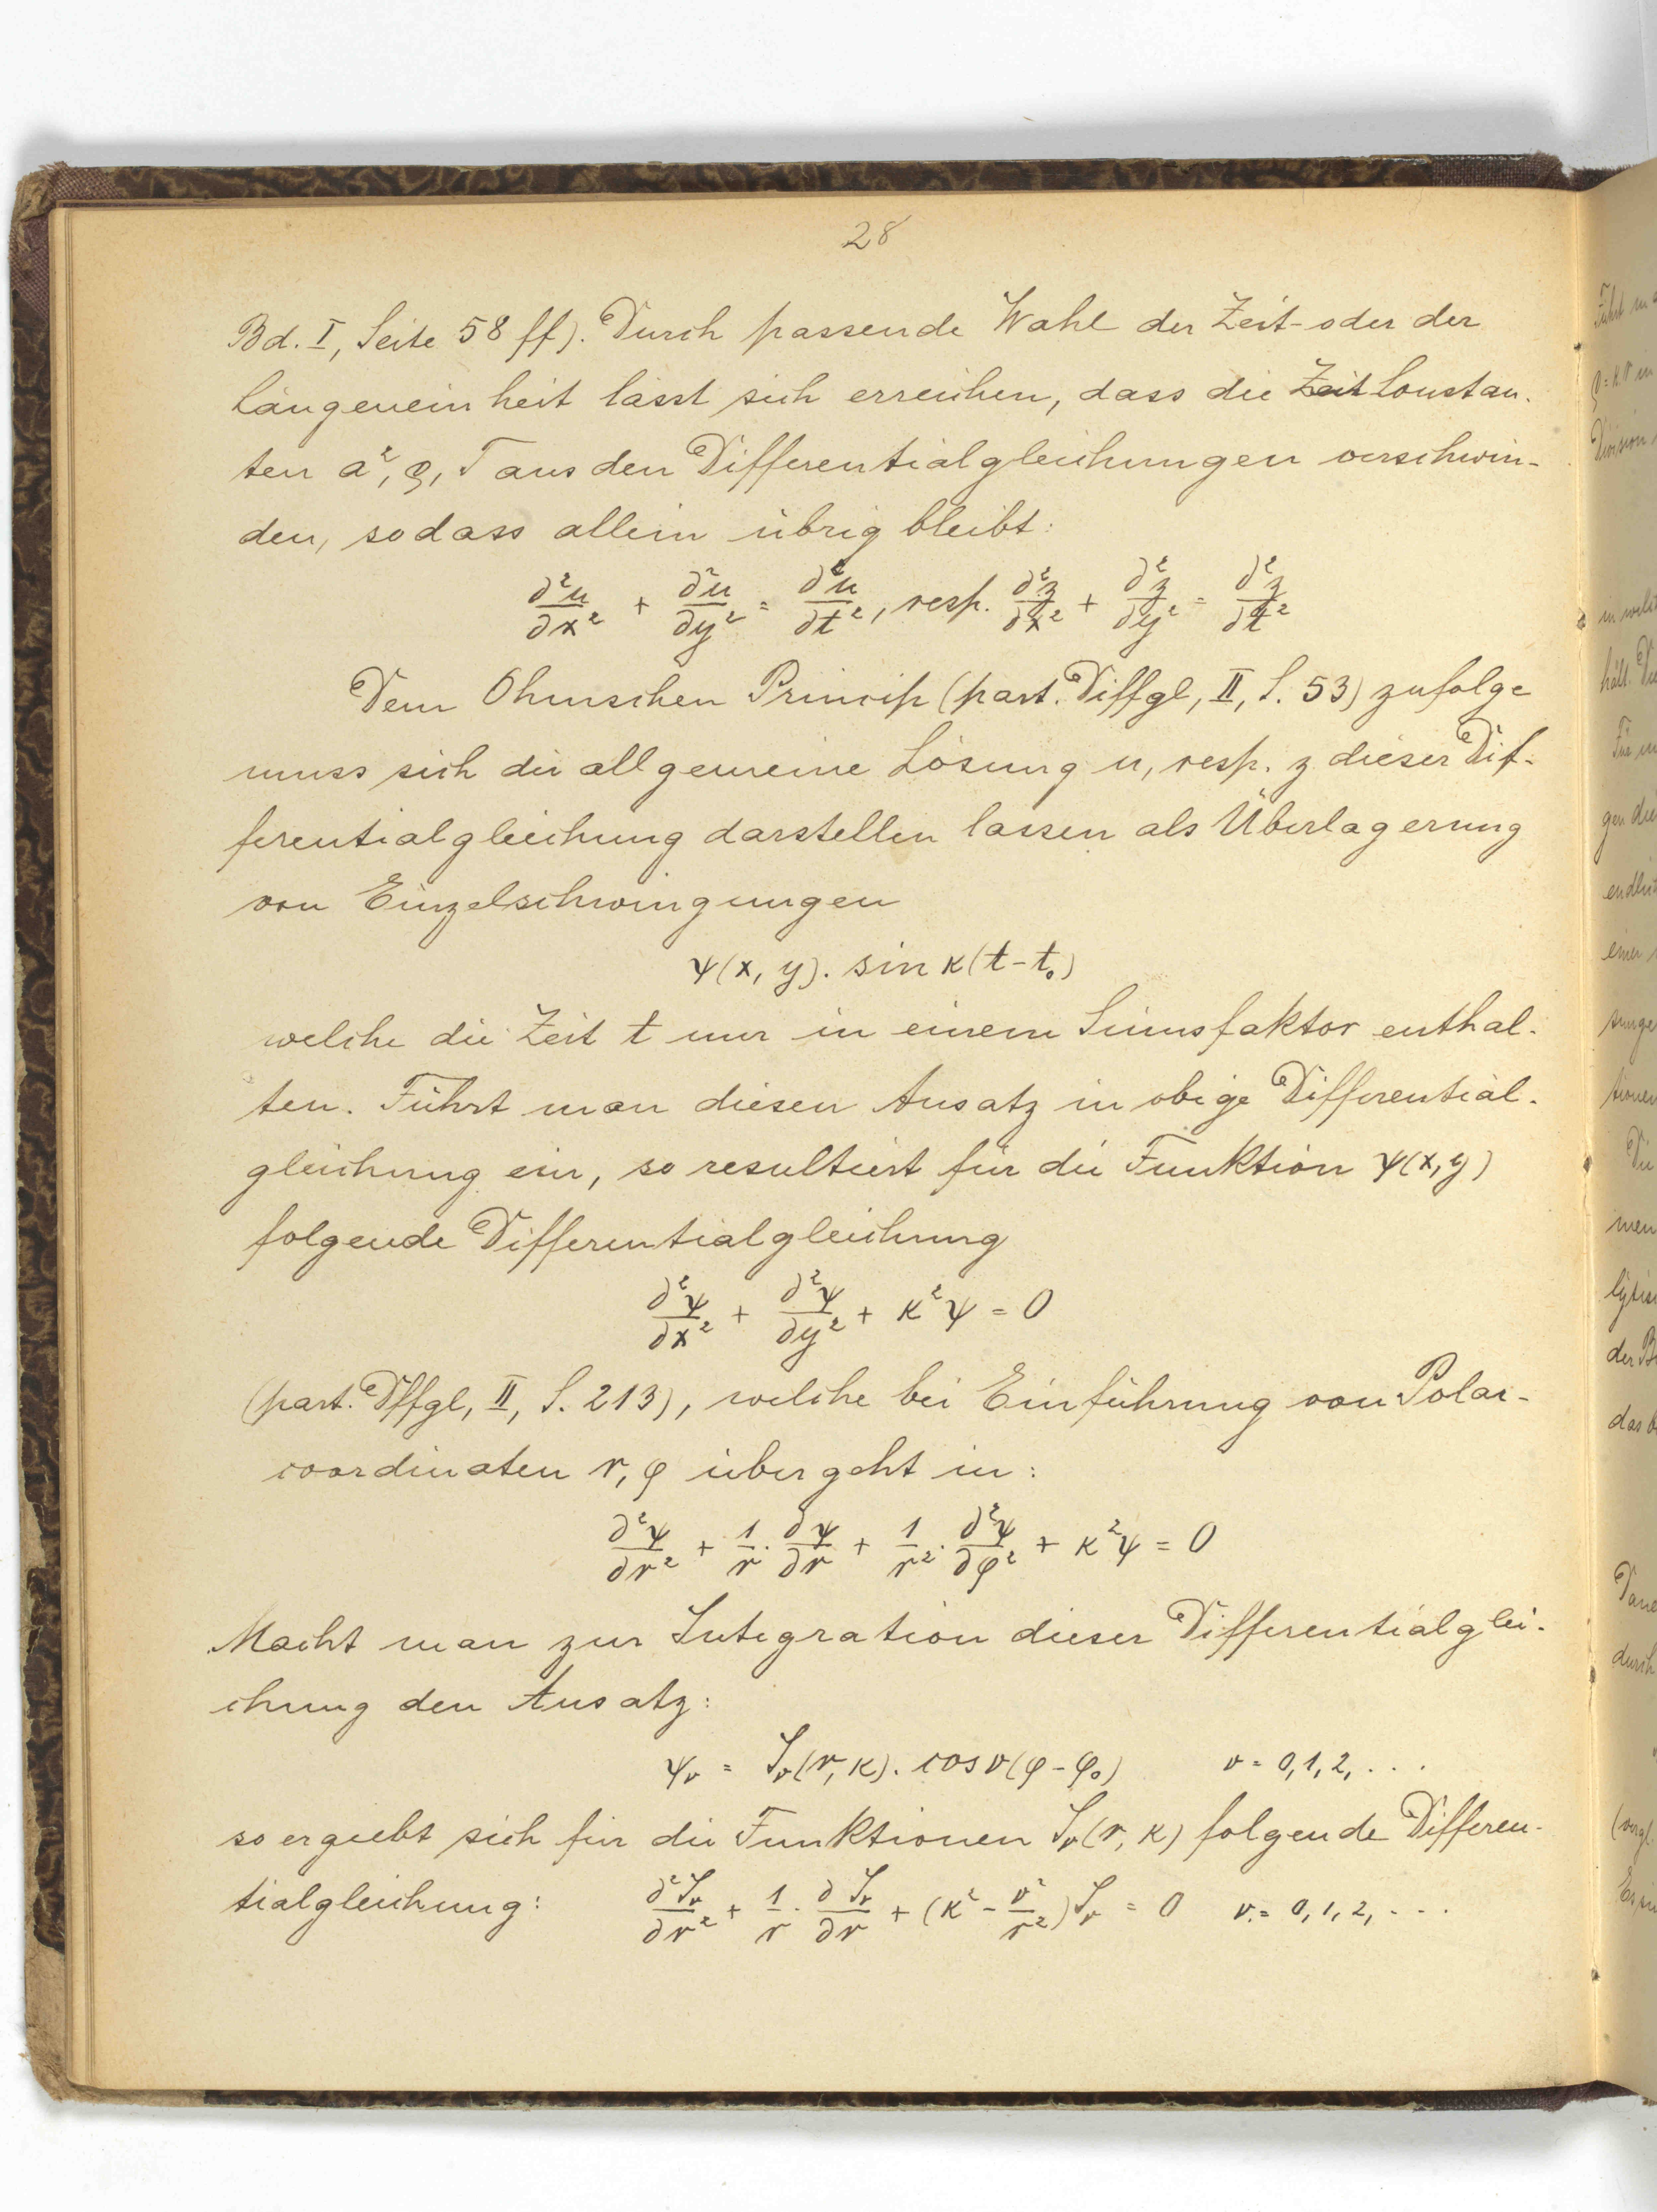 28
Bd. I, Seite 58 ff). Durch passende Wahl der Zeit- oder der
Längeneinheit lässt sich erreichen, dass die Zeit Constan-
ten a², ϱ, T aus den Differentialgleichungen verschwin-
den, sodass allein übrig bleibt:
∂²u/∂x² + ∂²u/∂y² = ∂²u/∂t², resp. ∂²z/∂x² + ∂²z/∂y² = ∂²z/∂t²
Dem Ohmschen Princip (part. Diffgl, II, S. 53) zufolge
muss sich die allgemeine Lösung u, resp. z dieser Dif-
ferentialgleichung darstellen lassen als Überlagerung
von Einzelschwingungen
ψ(x, y). sin κ(t-t₀)
welche die Zeit t nur in einem Sinusfaktor enthal-
ten. Führt man diesen Ansatz in obige Differential-
gleichung ein, so resultiert für die Funktion ψ(x, y)
folgende Differentialgleichung
∂²ψ/∂x² + ∂²ψ/∂y² + κ²ψ = 0
(part. Dffgl, II, S. 213), welche bei Einführung von Polar-
coordinaten r, φ übergeht in:
∂²ψ/∂r² + 1/r · ∂ψ/∂r + 1/r² · ∂²ψ/∂φ² + κ²ψ = 0
Macht man zur Integration dieser Differentialglei-
chung den Ansatz:
ψᵥ = Jᵥ(r, κ). cos ν(φ-φ₀) ν = 0, 1, 2, . . .
so ergiebt sich für die Funktionen Jᵥ(r, κ) folgende Differen-
tialgleichung: ∂²Jᵥ/∂r² + 1/r · ∂Jᵥ/∂r + (κ² - ν²/r²)Jᵥ = 0 ν = 0, 1, 2, . . .